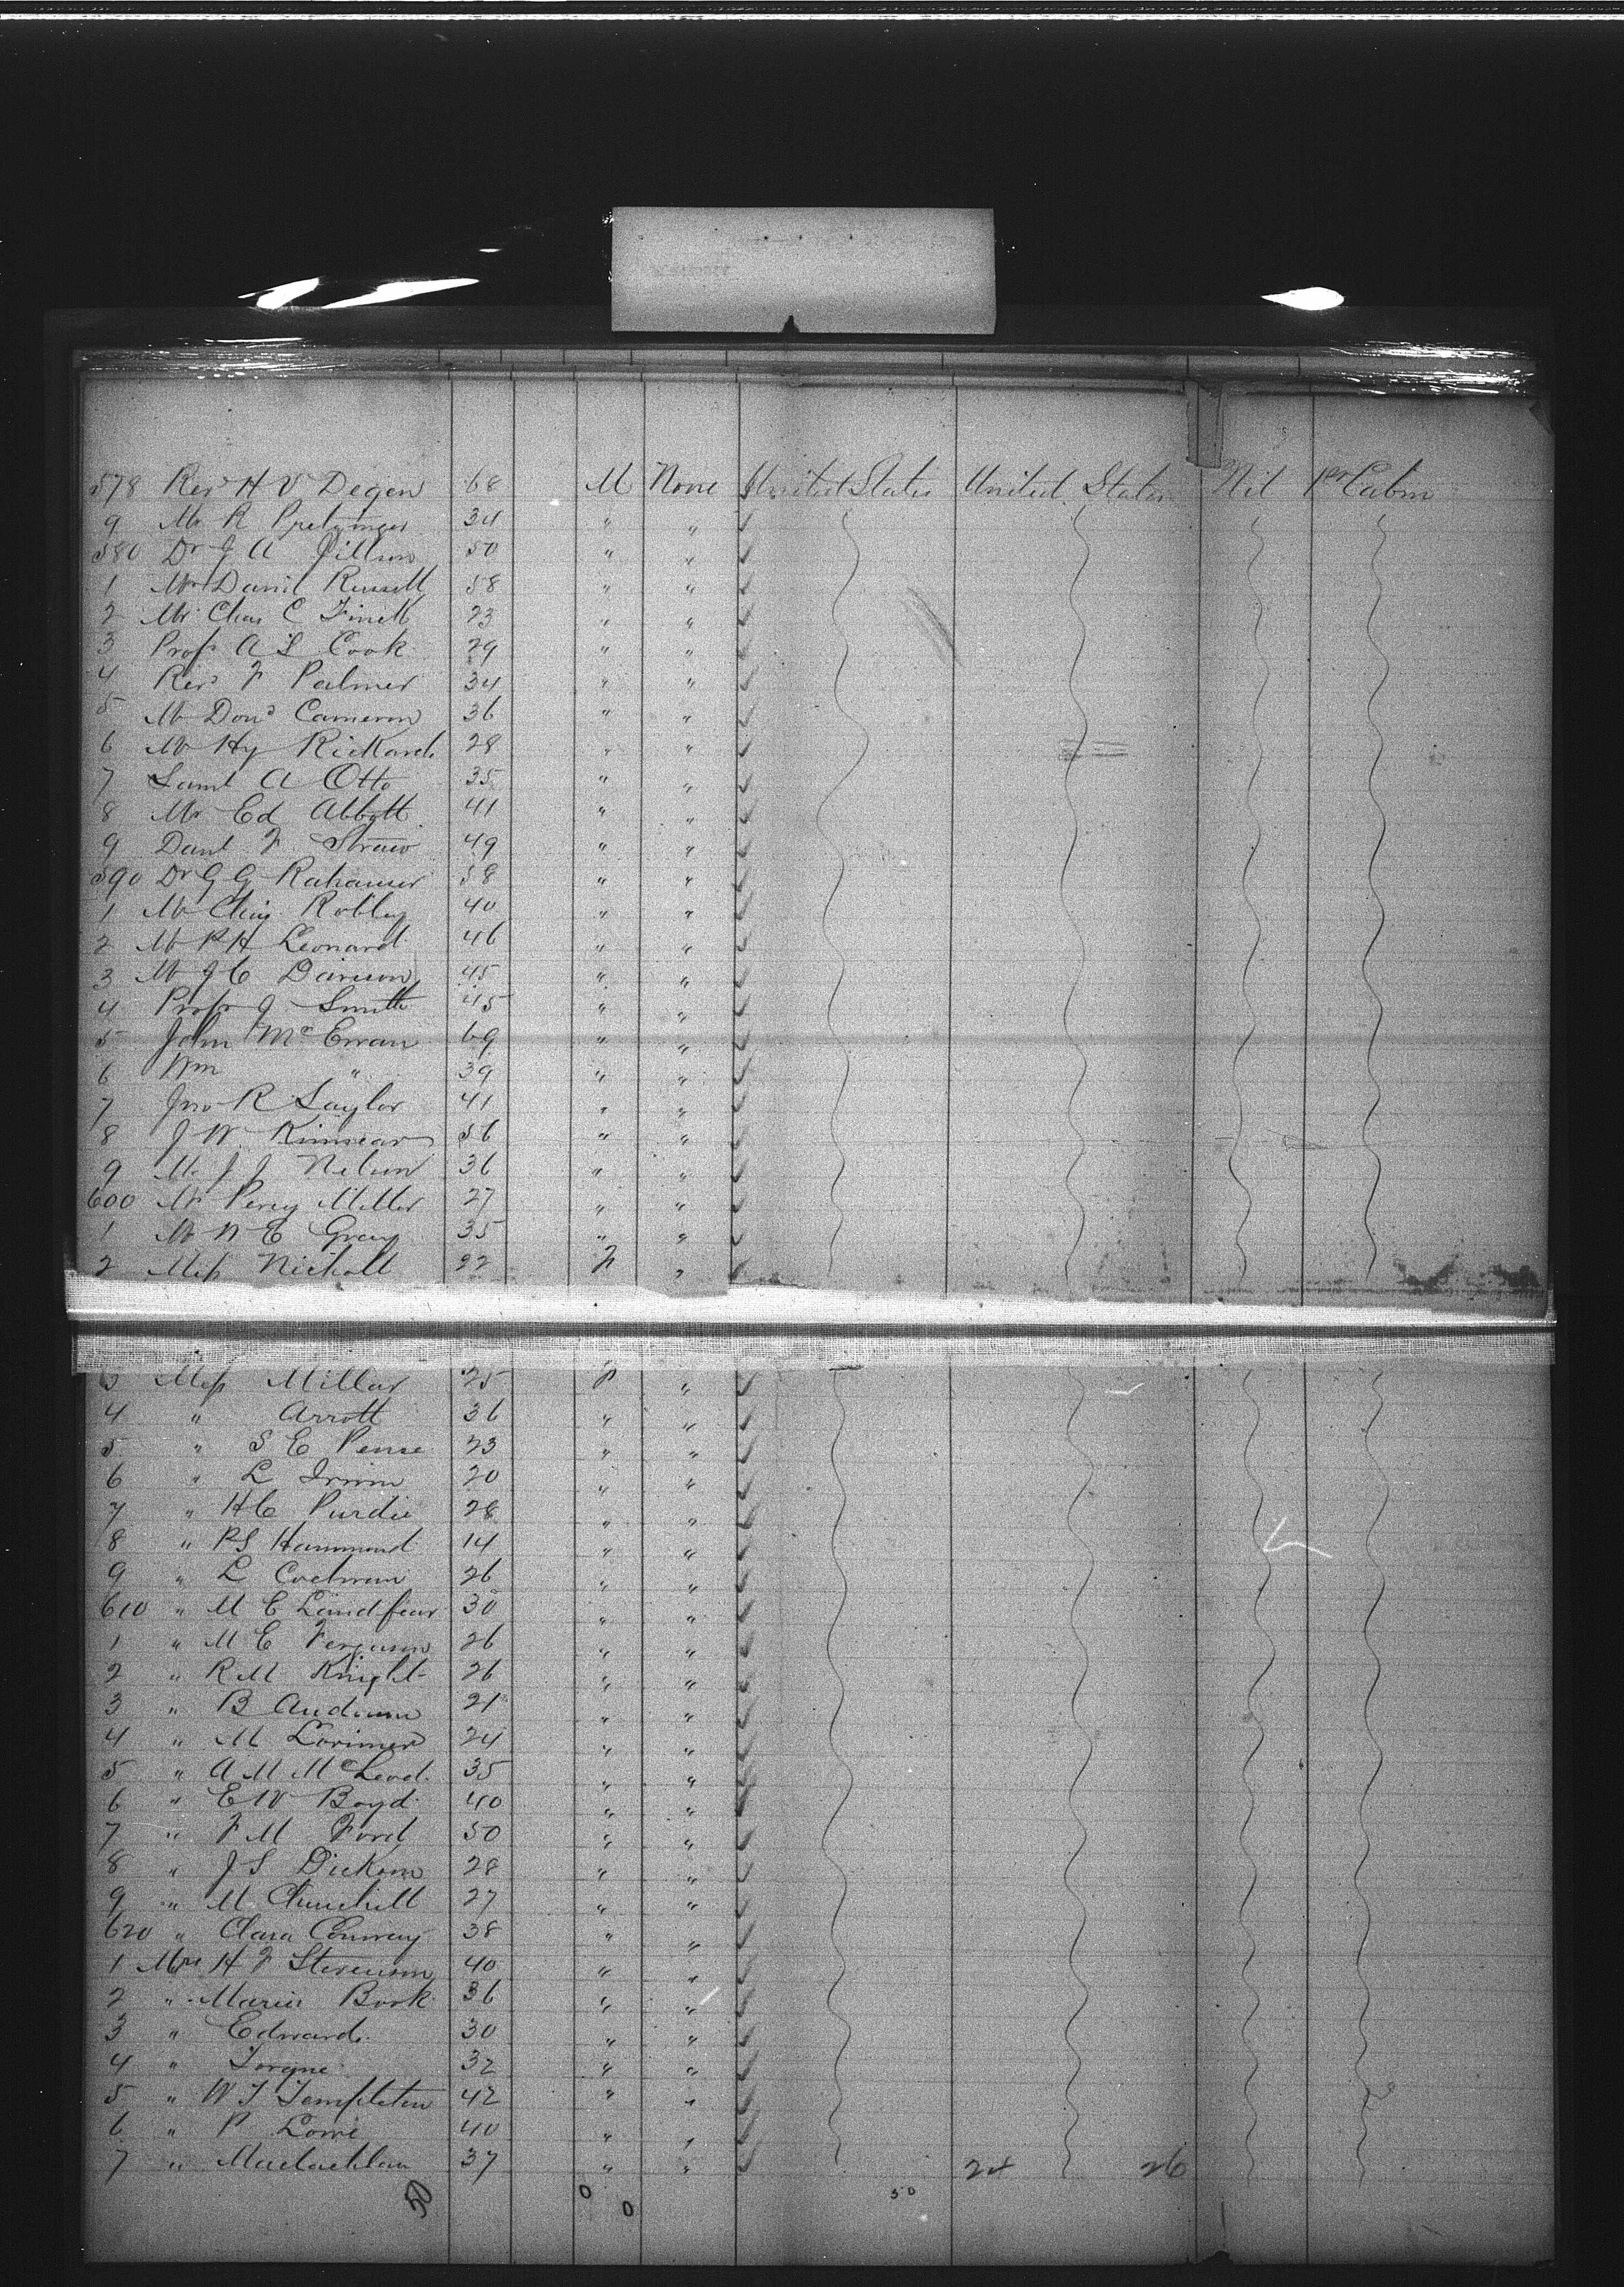 578 Revd H V Degen 68 M None United States United States Nil 1st Cabin
9 Mr R Pretzinger 34 " "
580 Dr J A Jillson 50 " "
1 Mr David Russell 58 " "
2 Mr Chas C 23 " "
3 Profr A S Cook 29 " "
4 Revd F Palmer 34 " "
5 Mr Dond Cameron 36 " "
6 Mr Hy Rickards 28 " "
7 Saml A Otto 35 " "
8 Mr Ed Abbott 41 " "
9 Danl F Straw 49 " "
590 Dr G G Rahauser 58 " "
1 Mr Chas Robley 40 " "
2 Mr P H Leonard 46 " "
3 Mr J C Davison 45 " "
4 Profr J Smith 45 " "
5 John McEwan 69 " "
6 Wm " 39 " "
7 Jno R Saylor 41 " "
8 J W Kinnear 56 " "
9 Mr J J Nelson 36 " "
600 Mr Percy Miller 27 " "
1 Mr N E Gray 35 " "
2 Miss Nicholl 22 F "
3 Miss Millar 25 F "
4 " Arrott 36 " "
5 " S E Pense 23 " "
6 " L Irwin 20 " "
7 " H C Purdie 28 " "
8 " P S Hammond 14 " "
9 " L Cochran 26 " "
610 " M C Landfear 30 " "
1 " M E Ferguson 26 " "
2 " R M Knight 26 " "
3 " B 21 " "
4 " M Lorimer 24 " "
5 " A M McLeod 35 " "
6 " E W Boyd 40 " "
7 " F M Ford 50 " "
8 " J S Dickson 28 " "
9 " M Churchill 27 " "
620 " Clara Conway 38 " "
1 Mrs H F Stevenson 40 " "
2 " Maria Book 36 " "
3 " Edwards 30 " "
4 " 32 " "
5 " W J Templeton 42 " "
6 " P Lowe 40 " "
7 " Maclachlan 37 " " 24 26
50 0 0 50